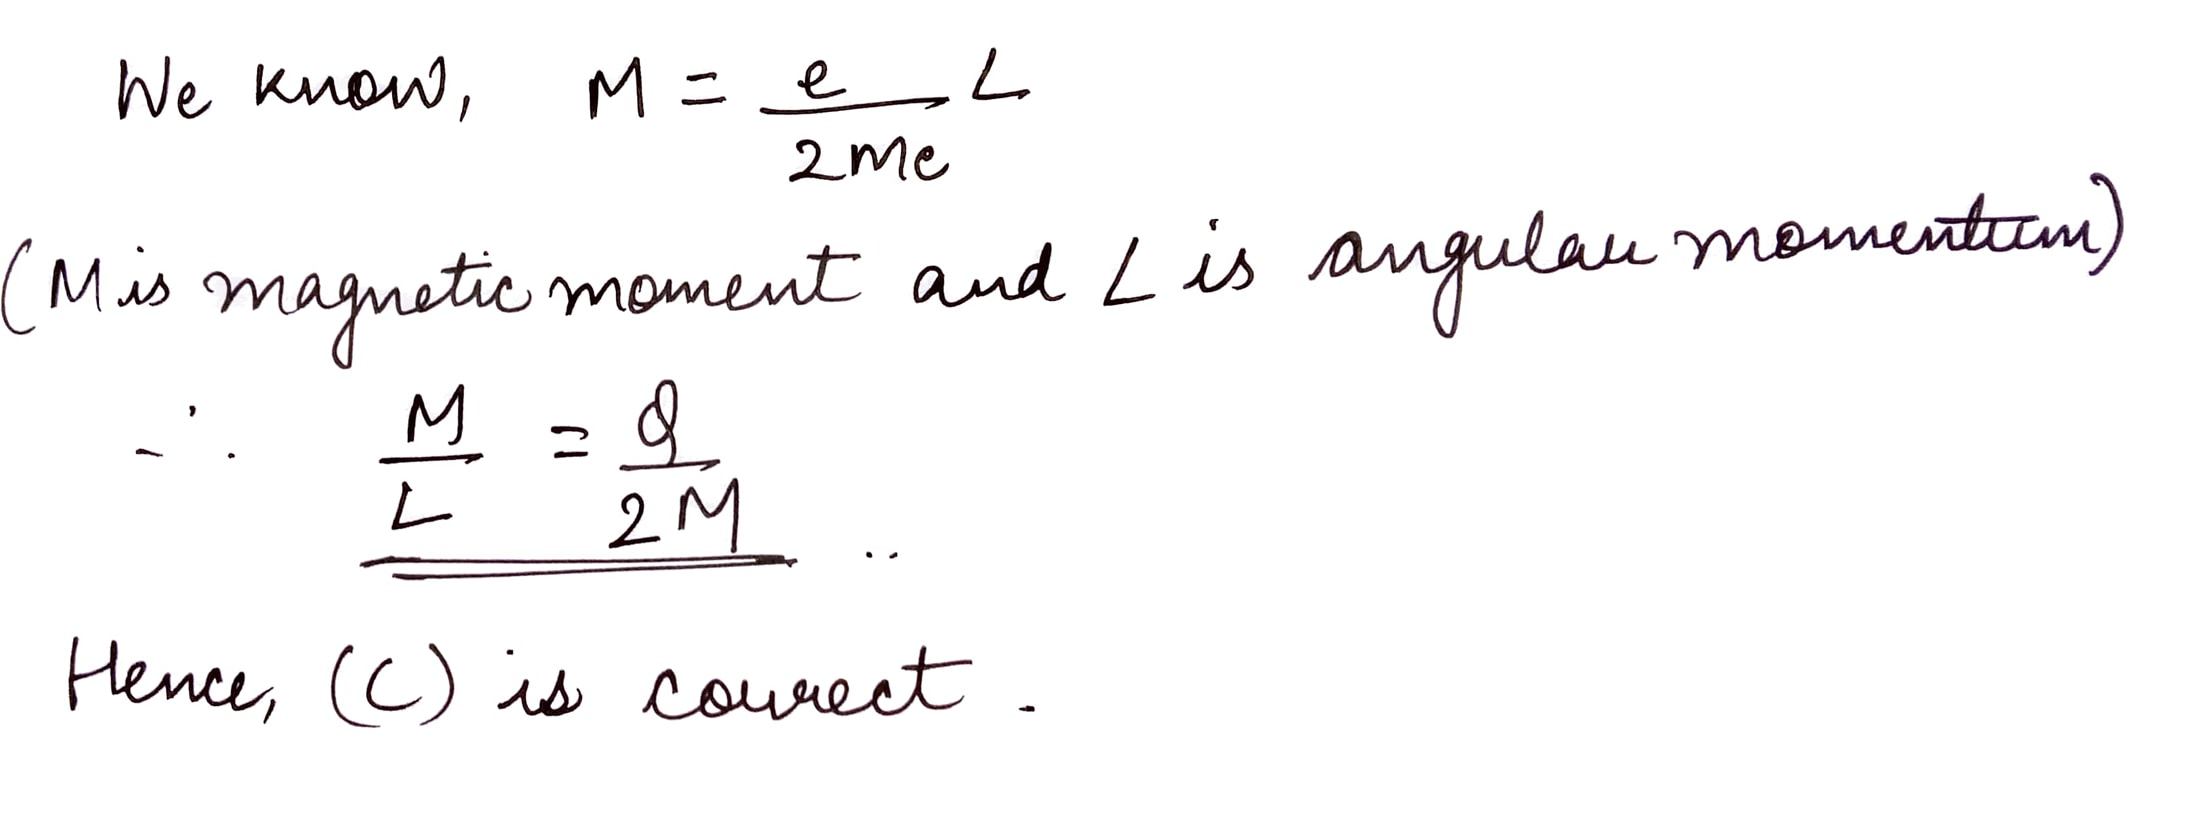 We know, M = e/2me L
(M is magnetic moment and L is angular momentum)
∴ M/L = Q/2M
Hence, (C) is correct.